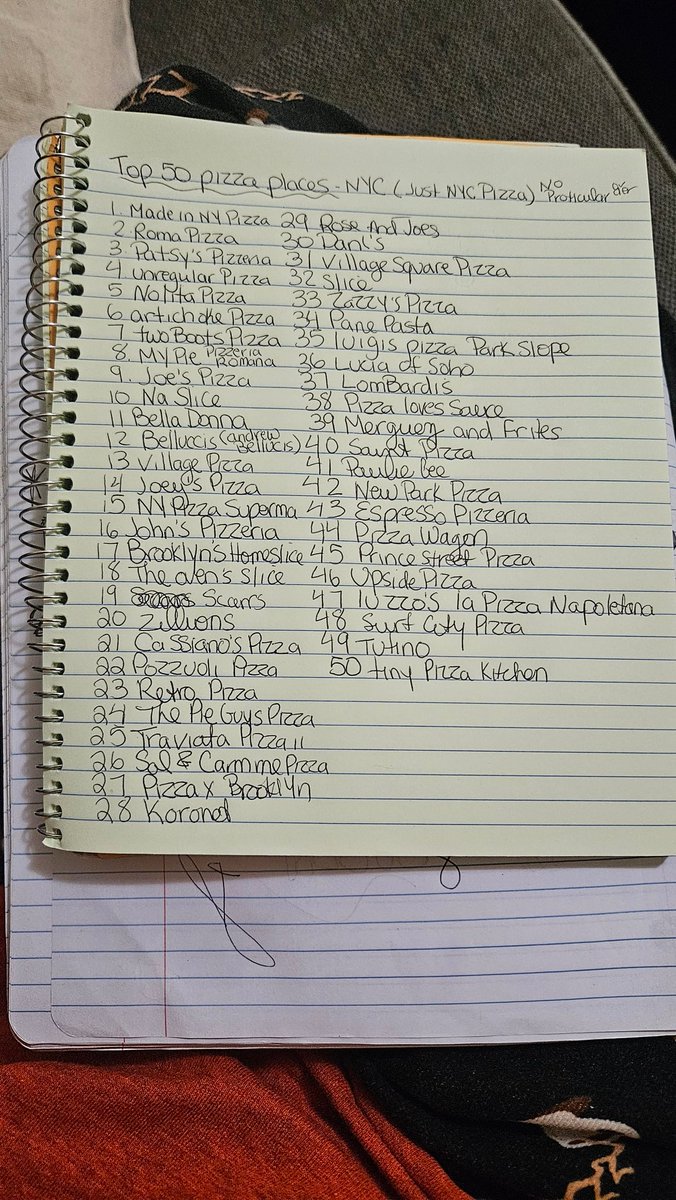 Top 50 pizza places - NYC (Just NYC Pizza) No Proticular
1. Made in NY Pizza
2. Roma Pizza
3. Patsy's Pizzeria
4 unregular Pizza
5 Nolita Pizza
6 artichoke Pizza
7 two Boots Pizza
8. My Pie Pizzeria Romana
9. Joe's Pizza
10 Na Slice
11 Bella Donna
12 Belluccis (andrew Bellucis)
13 Village Pizza
14 Joey's Pizza
15 NY Pizza Suprema
16 John's Pizzeria
17 Brooklyn's Homeslice
18 The oven's slice
19 Scarrs
20 Zillions
21 Cassiano's Pizza
22 Pozzuoli Pizza
23 Retro Pizza
24 The Pie Guys Pizza
25 Traviata Pizza II
26 Sal & Carmine Pizza
27 Pizza x Brooklyn
28 Koronet
29 Rose And Joes
30 Dani's
31 Village Square Pizza
32 Slice
33 Zazzy's Pizza
34 Pane Pasta
35 luigis pizza Park Slope
36 Lucia of Soho
37 LomBardi's
38 Pizza loves Sauce
39 Merguez and Frites
40 Saupt Pizza
41 Paulie Gee
42 New Park Pizza
43 Espresso Pizzeria
44 Pizza Wagon
45 Prince Street Pizza
46 Upside Pizza
47 luzzo's la Pizza Napoletana
48 Surf City Pizza
49 Tutino
50 tiny Pizza Kitchen